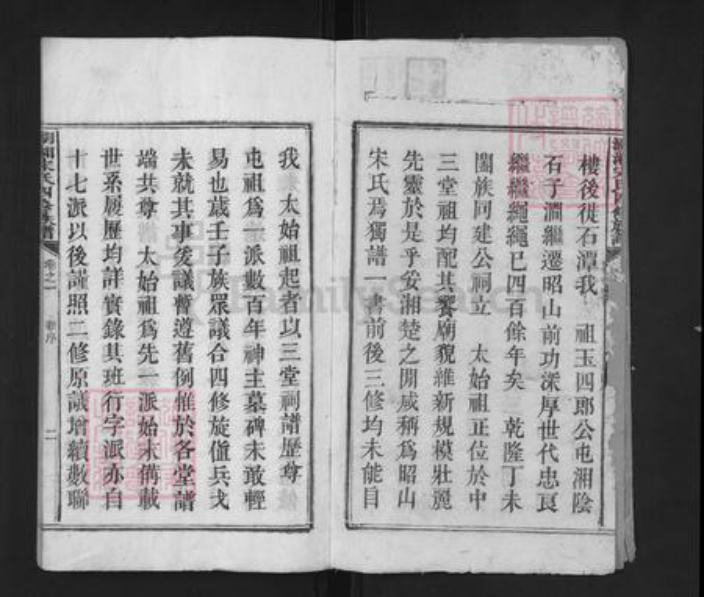 樓後徙石潭我 祖玉四郎公屯湘陰
石子澗繼遷昭山前功深厚世代忠良
繼繼繩繩已四百餘年矣 乾隆丁未
闔族同建公祠立 太始祖正位於中
三堂祖均配其饗廟貌維新規模壯麗
先靈於是乎妥湘楚之間咸稱爲昭山
宋氏焉獨譜一書前後三修均未能自
我 太始祖起者以三堂祠譜歷尊
屯祖爲一派數百年神主墓碑未敢輕
易也歲壬子族眾議合四修旋值兵戈
未就其事爰議暫遵舊例惟於各堂譜
端共尊 太始祖爲先一派始末備載
世系履歷均詳實錄其班行字派亦自
十七派以後謹照二修原議增續數聯
宋氏四修族譜
卷之一
二
FamilySearch